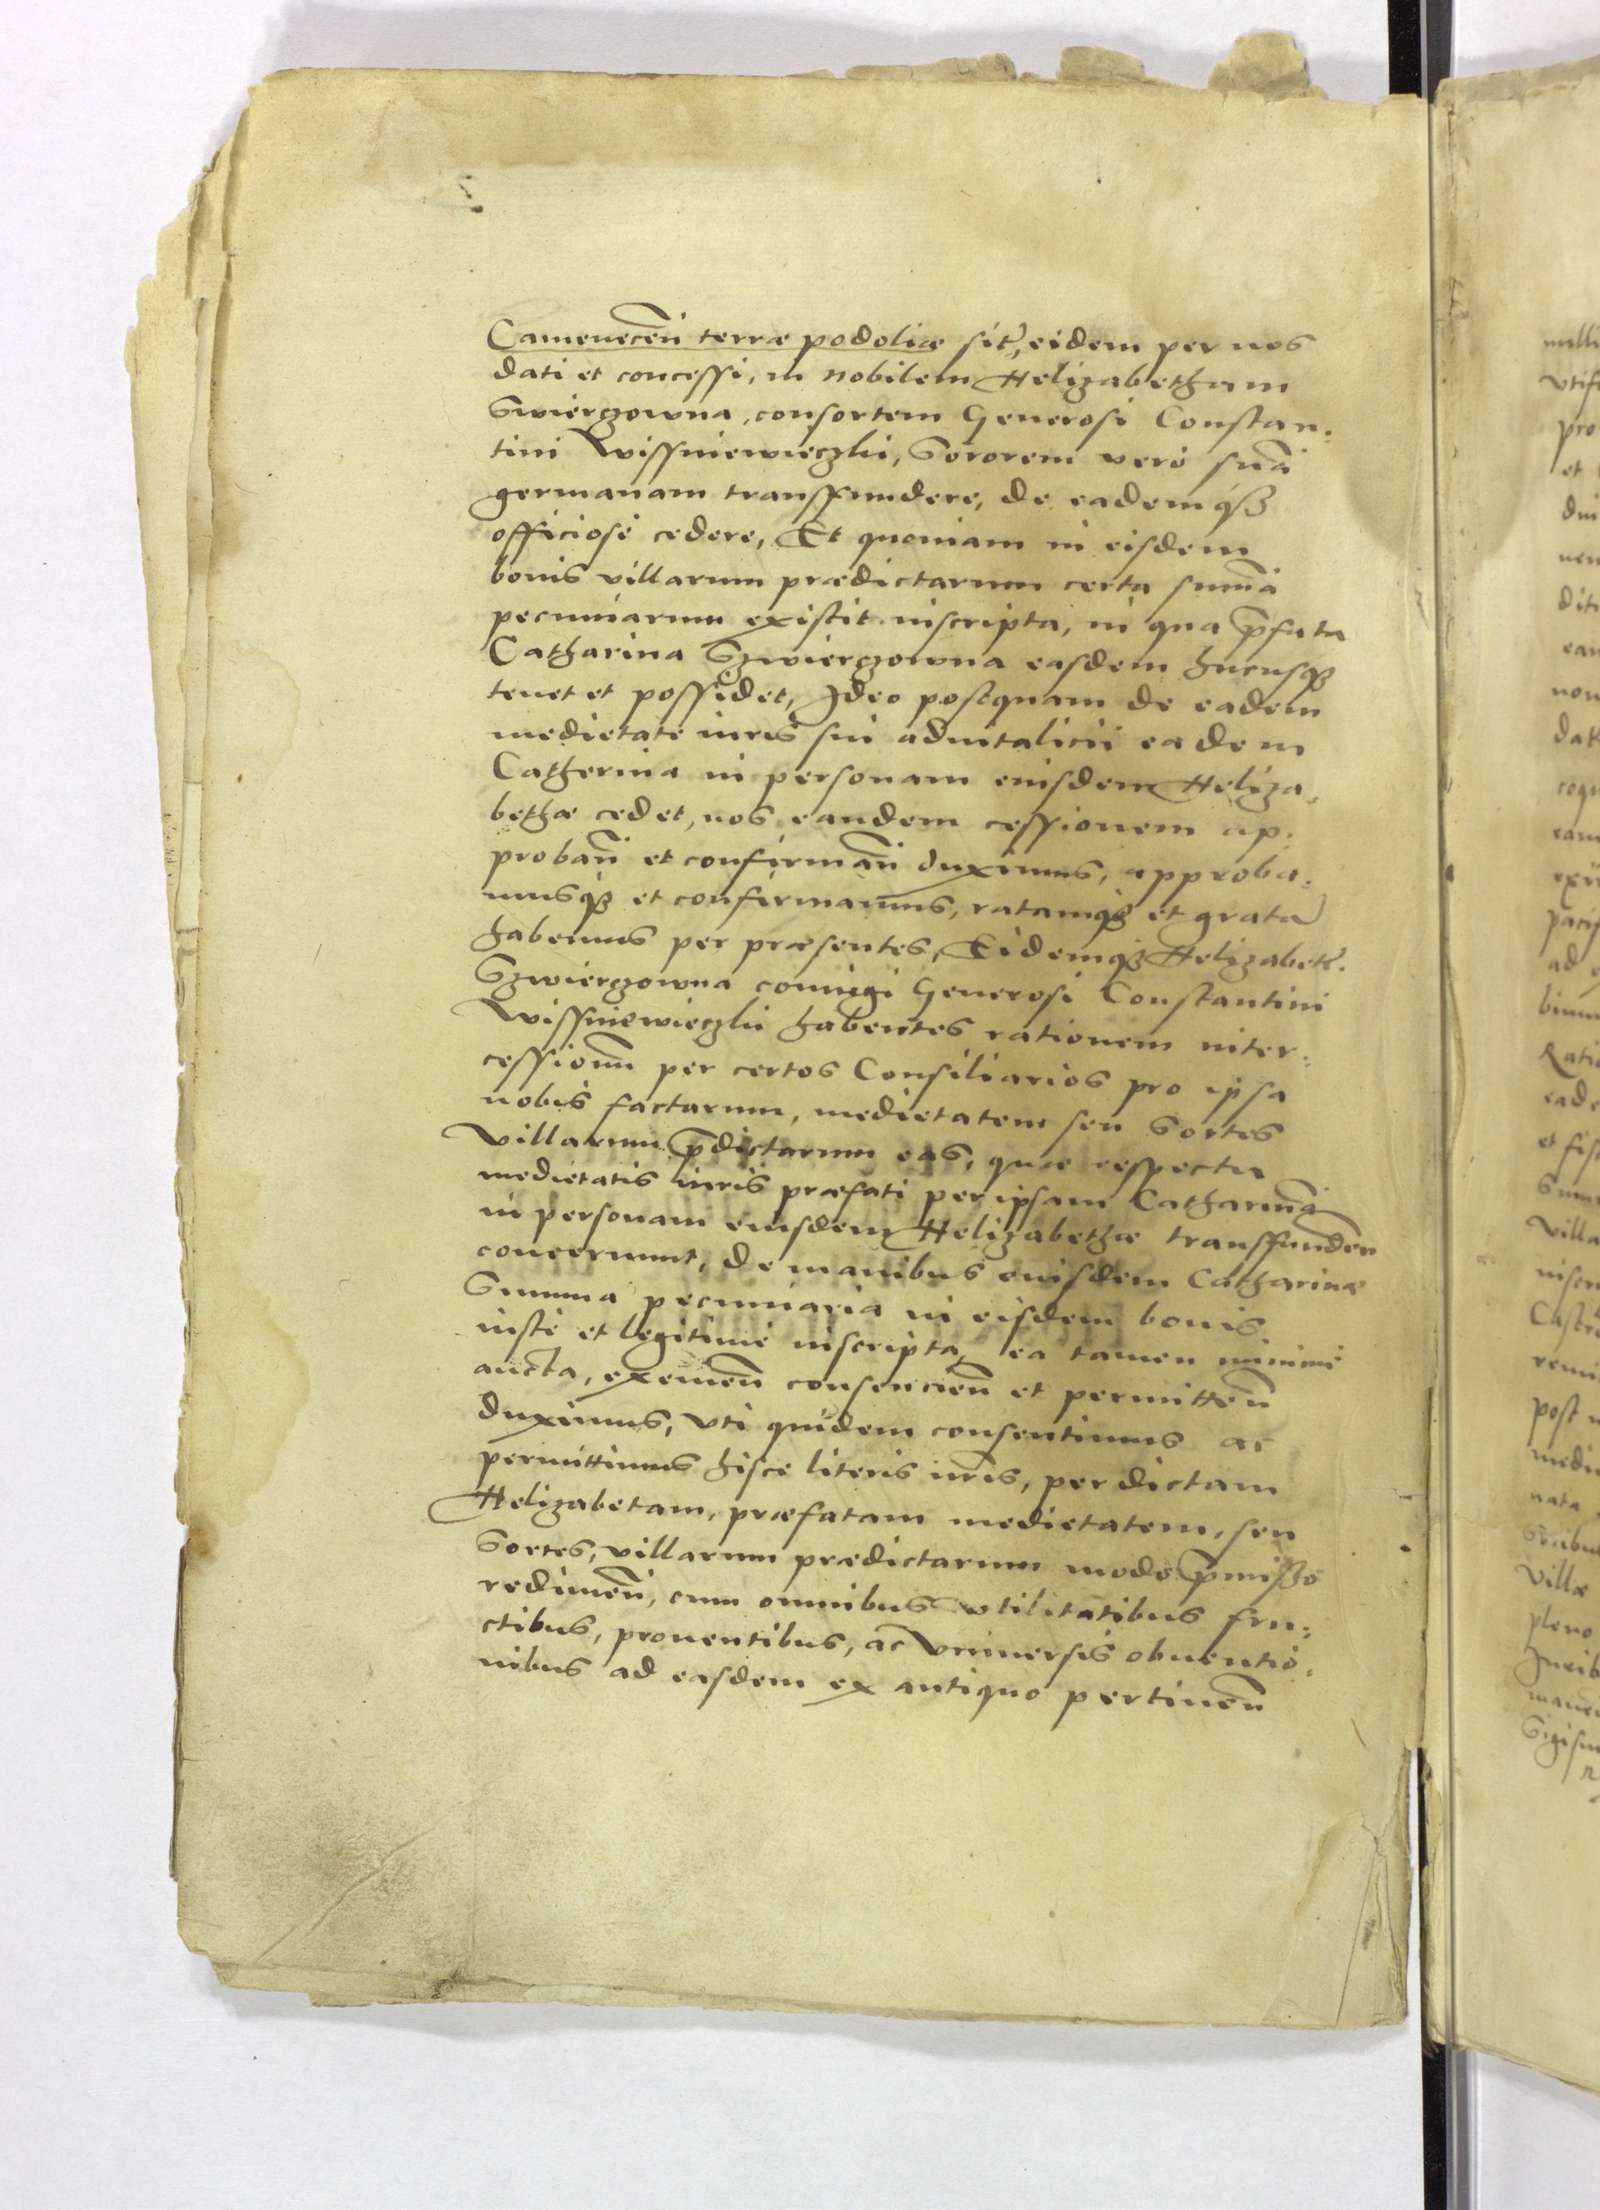 Camenecen̄ terræ podoliæ sit̃, eidem per nos
dati et concessi, in nobilem Helizabetham
Swierczowna, consortem Generosi Constan:
tini Wissniewieczki, Sororem vero suā
germanam transfundere, de eademq́ꝫ
officiose cedere, Et quoniam in eisdem
bonis villarum prædictarum certa summā
pecuniarum existit inscripta, in qua p̄fata
Catharina Szwierczowna easdem hucusqꝫ
tenet et possidet, Ideo postquam de eadem
medietate iuris sui aduitalicii eadem
Catherina in personam eiusdem Heliza,
bethæ cedet, nos eandem cessionem ap:
proban̄ et confirman̄ duximus, approba:
musq́ꝫ et confirmamus, ratamqꝫ et gratā
habemus per præsentes, Eidemqꝫ Helizabet̃.
Szwierczowna coniugi Generosi Constantini
Wissniewieczki habentes rationem inter:
cessionū per certos Consiliarios pro ipsa
nobis factarum, medietatem seu Sortes
villarum p̄dictarum eas, quæ respectu
medietatis iuris præfati per ipsam Catharinā
in personam eiusdem Helizabethæ transfunden̄
conuerunt, de manibus eiusdem Catharinæ
Summa pecuniaria in eisdem bonis
iuste et legitime inscripta, ea tamen minime
aucta, exemen̄ consencien̄ et permitten̄
duximus, vti quidem consentimus ac
permittimus hisce literis nr̄is, per dictam
Helizabetam, præfatam medietatem, seu
Sortes, villarum prædictarum modo p̄misso
redimen̄, cum omnibus vtilitatibus fru:
ctibus, prouentibus, ac vniuersis obuentio:
nibus ad easdem ex antiquo pertinen̄